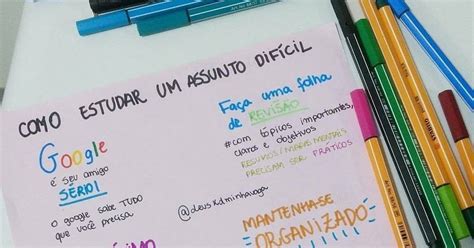 COMO ESTUDAR UM ASSUNTO DIFÍCIL
Google
é seu amigo
SÉRIO!
O google sabe TUDO
que você precisa
Faça uma folha
de REVISÃO
#com tópicos importantes,
claros e objetivos
RESUMOS/MAPAS MENTAIS
PRECISAM SER PRÁTICOS
@deusxdminhavoga
MANTENHA-SE
ORGANIZADO